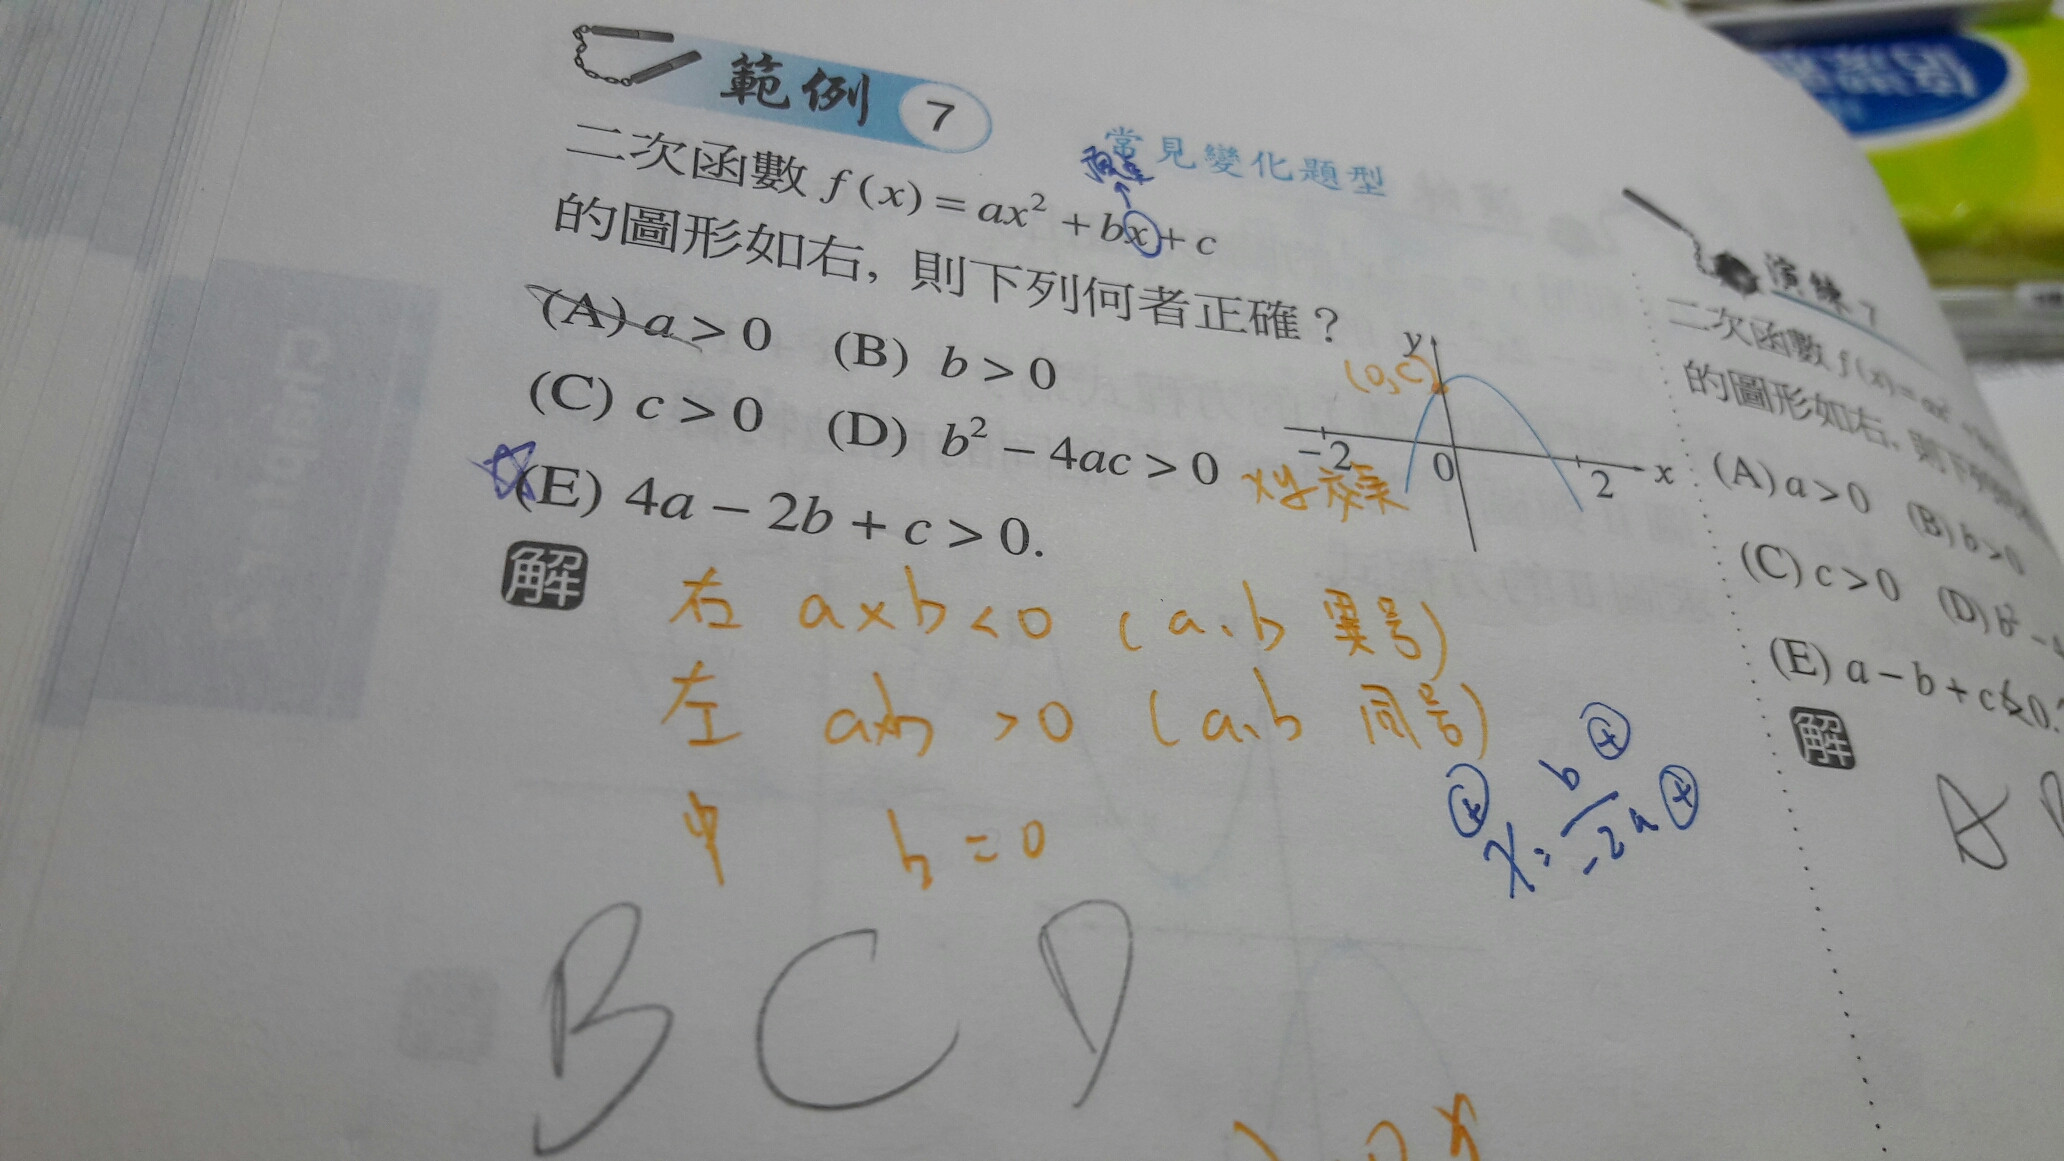 範例 7
常見變化題型
二次函數 f(x) = ax² + bx + c
的圖形如右，則下列何者正確？
(A) a > 0 (B) b > 0
(C) c > 0 (D) b² − 4ac > 0
(E) 4a − 2b + c > 0.
y
(0,C)
−2
0
2
x
解
右 a×b<0 (a、b 異号)
左 a×b >0 (a、b 同号)
中 b=0
x= b/-2a
B C D
演練 7
二次函數 f(x) = ax²
的圖形如右，則
(A) a > 0
(B) b > 0
(C) c > 0
(D) b² −
(E) a − b + c < 0.
解
A